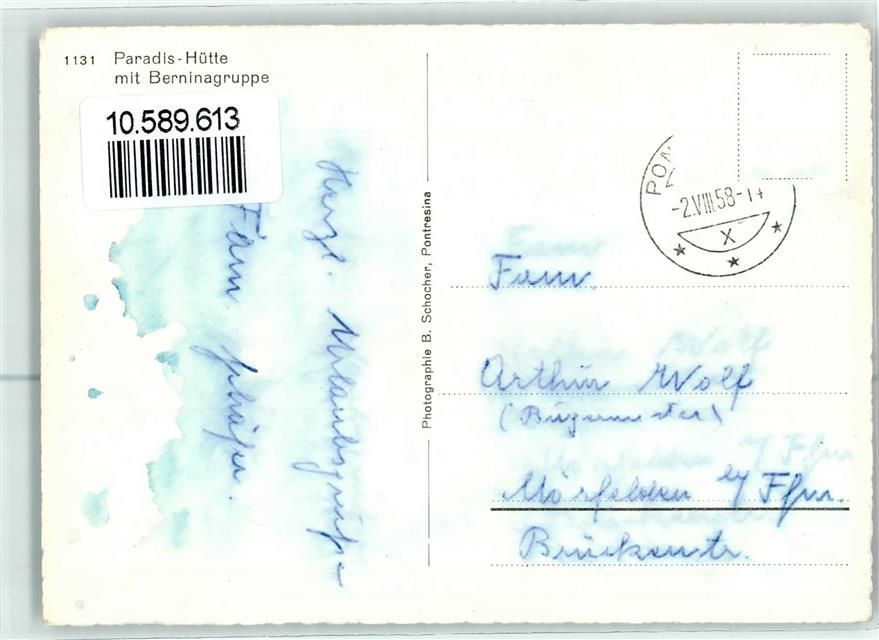 1131 Paradis-Hütte
mit Berninagruppe
10.589.613
Herzl. Urlaubsgrüße
Fam. Schäfer.
Photographie B. Schocher, Pontresina
PON
-2.VIII.58-14
X
Fam.
Arthur Wolf
(Bürgermeister)
Mörfelden b/ Ffm.
Brückenstr.